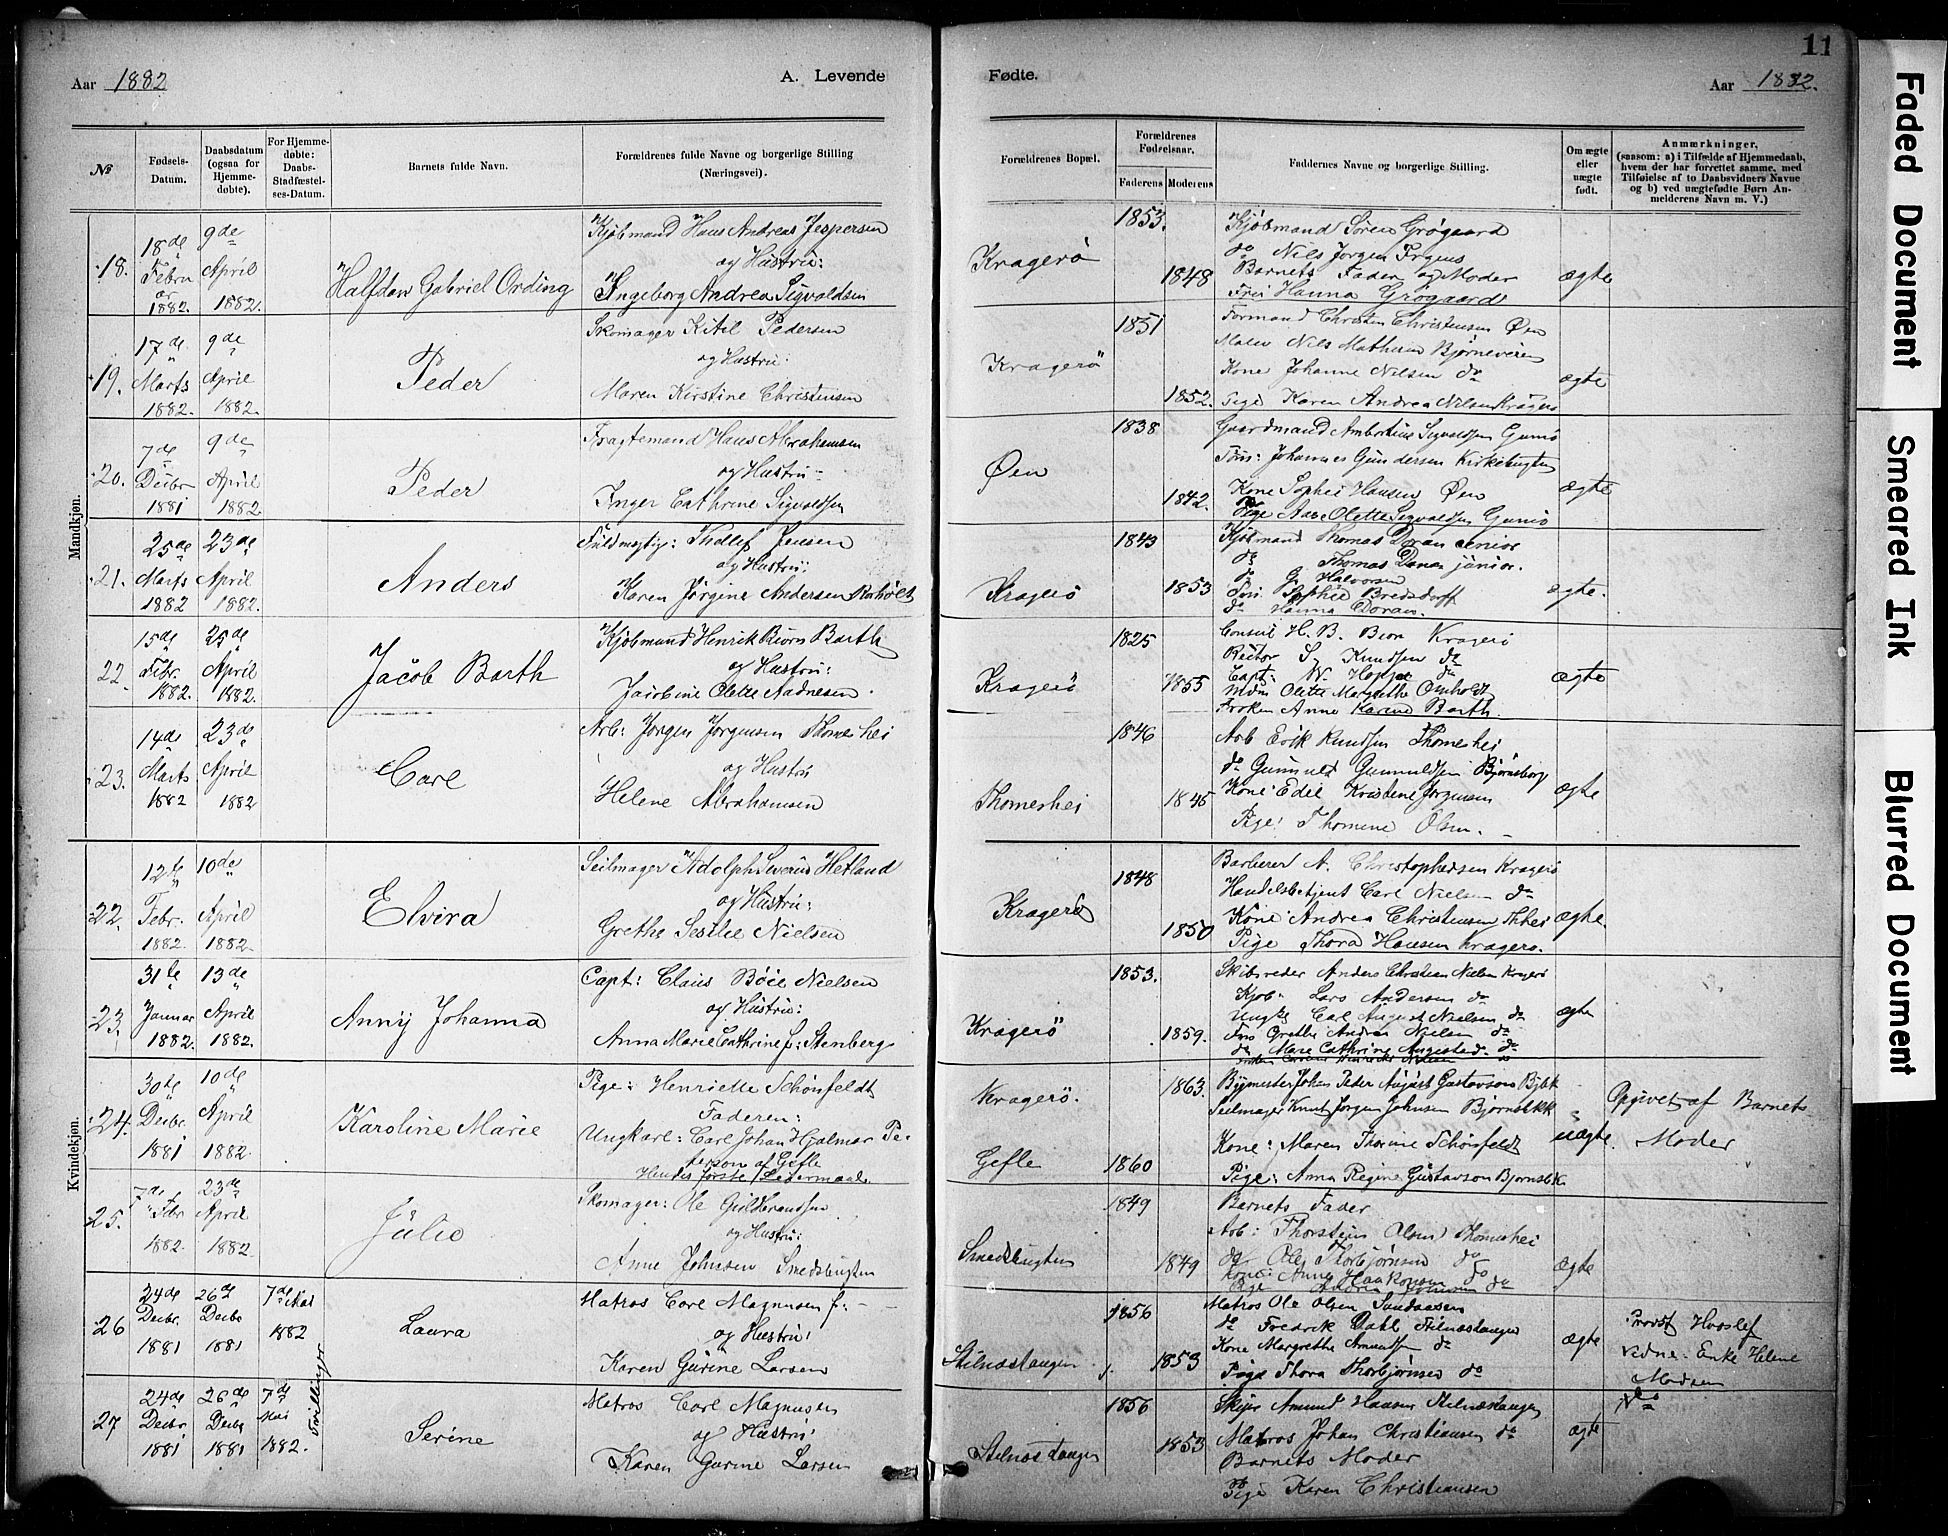 11
Aar 1882
A. Levende
Fødte.
Aar 1882.
№
Fødsels-Datum.
Daabsdatum (ogsaa for Hjemmedøbte).
For Hjemmedøbte: Daabs-Stadfæstelses-Datum.
Barnets fulde Navn.
Forældrenes fulde Navne og borgerlige Stilling (Næringsvei).
Forældrenes Bopæl.
Forældrenes Fødselsaar.
Faderens
Moderens
Faddernes Navne og borgerlige Stilling.
Om ægte eller uægte født.
Anmærkninger,
(saasom: a) i Tilfælde af Hjemmedaab, hvem der har forrettet samme, med Tilføielse af to Daabsvidners Navne og b) ved uægtefødte Børn Anmelderens Navn m. V.)
Mandkjøn.
18. 18de Februar 1882. 9de April 1882. Halfdan Gabriel Ording
Kjøbmand Hans Andreas Jespersen
og Hustru:
Ingeborg Andrea Sigvaldsen
Kragerö 1853. 1848
Kjöbmand Sören Grögaard
do Nils Jørgen
Barnets Fader og Moder
Hanna Grögaard
ægte
19. 17de Marts 1882. 9de April 1882. Peder
Skomager Kitil Pedersen
og Hustru:
Maren Kirstine Christensen
Kragerö 1851 1852.
Formand Christen Christensen Øen
Nils Mathesen
Kone Johanne Nilsen do
Pige Karen Andrea Nilsen Kragerö
ægte
20. 7de Decbr 1881 9de April 1882. Peder
Fragtemand Hans Abrahamsen
og Hustru
Inger Cathrine Sigvaldsen
Øen 1838 1842.
Gaardmand Sigvaldsen Gumö
Johannes Gundersen Kirkebugten
Kone Sophie Hansen Øen
Pige Olette Sigvaldsen Gumö
ægte
21. 25de Marts 1882 23de April 1882. Anders
Fuldmægtig: Thellef Jensen
og Hustru:
Karen Jörgine Andersen
Kragerö 1843 1853
Kjöbmand Thomas Doran senior
do Thomas Doran junior.
do G. Halvorsen
Sophie Bredsdorff
do Hanna Doran.
ægte.
22. 15de Febr. 1882. 25de April 1882. Jacob Barth
Kjöbmand Henrik Biörn Barth
og Hustru:
Jacobine Olette Aadnesen.
Kragerö 1825 1855
Consul H. B. Kragerö
Rector S. Knudsen do
Capt: W. do
Olette Margrethe Omholdt
Froken Anne Karine Barth.
ægte
23. 14de Marts 1882 23de April 1882 Carl
Arb: Jörgen Jörgensen Thomeshei
og Hustru
Helene Abrahamsen
Thomeshei 1846 1845
Arb Erik Knudsen Thomeshei
do Gunnuld Gunnuldsen Björnsborg
Kone: Edel Kristene Jörgensen
Pige: Thomine Olsen. -
ægte
Kvindekjøn.
22. 12te Febr. 1882. 10de April 1882. Elvira
Seilmager Adolph Severin Hetland
og Hustru:
Grethe Nielsen
Kragerö 1848 1850
Barberer A. Christophersen Kragerö
Handelsbetjent Carl Nielsen do
Kone Andrea Christensen
Pige Thora Hansen Kragerö.
ægte.
23. 31te Januar 1882. 13de April 1882. Anny Johanna
Capt: Claus Böie Nielsen
og Hustru:
Anna Marie Cathrine f: Stenberg
Kragerö 1853. 1859.
Skibsreder Anders Christian Nielsen Kragerö
Kjöb. Lars Andersen do
Ungk: Carl August Nielsen do
Grethe Andrea Nielsen do
do Cathrine do
ægte
24. 30te Decbr. 1881 10de April 1882. Karoline Marie
Pige: Henriette Schönfeldt
Faderen:
Ungkarl: Carl Johan Hjalmar Peterson af Gefle
Hendes første Leiermaal
Kragerö. 1863.
Gefle 1860
Bygmester Johan Peder August Gustavson
Seilmager Knut Jörgen Johnsen
Kone: Maren Schönfeldt
Pige: Anna Regine Gustavson
uægte.
Opgivet af Barnets Moder
25. 7de Febr 1882. 23de April 1882. Julie
Skomager: Ole Guldbrandsen
og Hustru:
Anne Johnsen Smedsbugten
Smedsbugten 1849 1849
Barnets Fader
Arb: Thorstein Olsen Thomeshei
do Ole Thorbjörnsen do
Kone Anne Haakonsen do
Pige do
ægte
26 24de Decbr. 1881 26de Decbr 1881 7de Mai 1882 Laura
Tvillinger
Matros Carl Magnusen
og Hustru:
Karen Gurine Larsen
Stilnæstangen 1856 1853
Matros Ole Olsen
do Fredrik Dahl Stilnæstangen
Kone Margrethe Amundsen do
Pige Thora Thorbjörnsen do
ægte
Provst
Enke Helene Madsen
27 24de Decbr. 1881 26de Decbr 1881 7de Mai 1882. Serine
Matros Carl Magnusen
og Hustru
Karen Gurine Larsen
Stilnæstangen 1856 1853
Amund Hansen Stilnæstangen
Matros Johan Christiansen do
Barnets Moder
Pige Karen Christiansen
ægte
do
Faded Document
Smeared Ink
Blurred Document